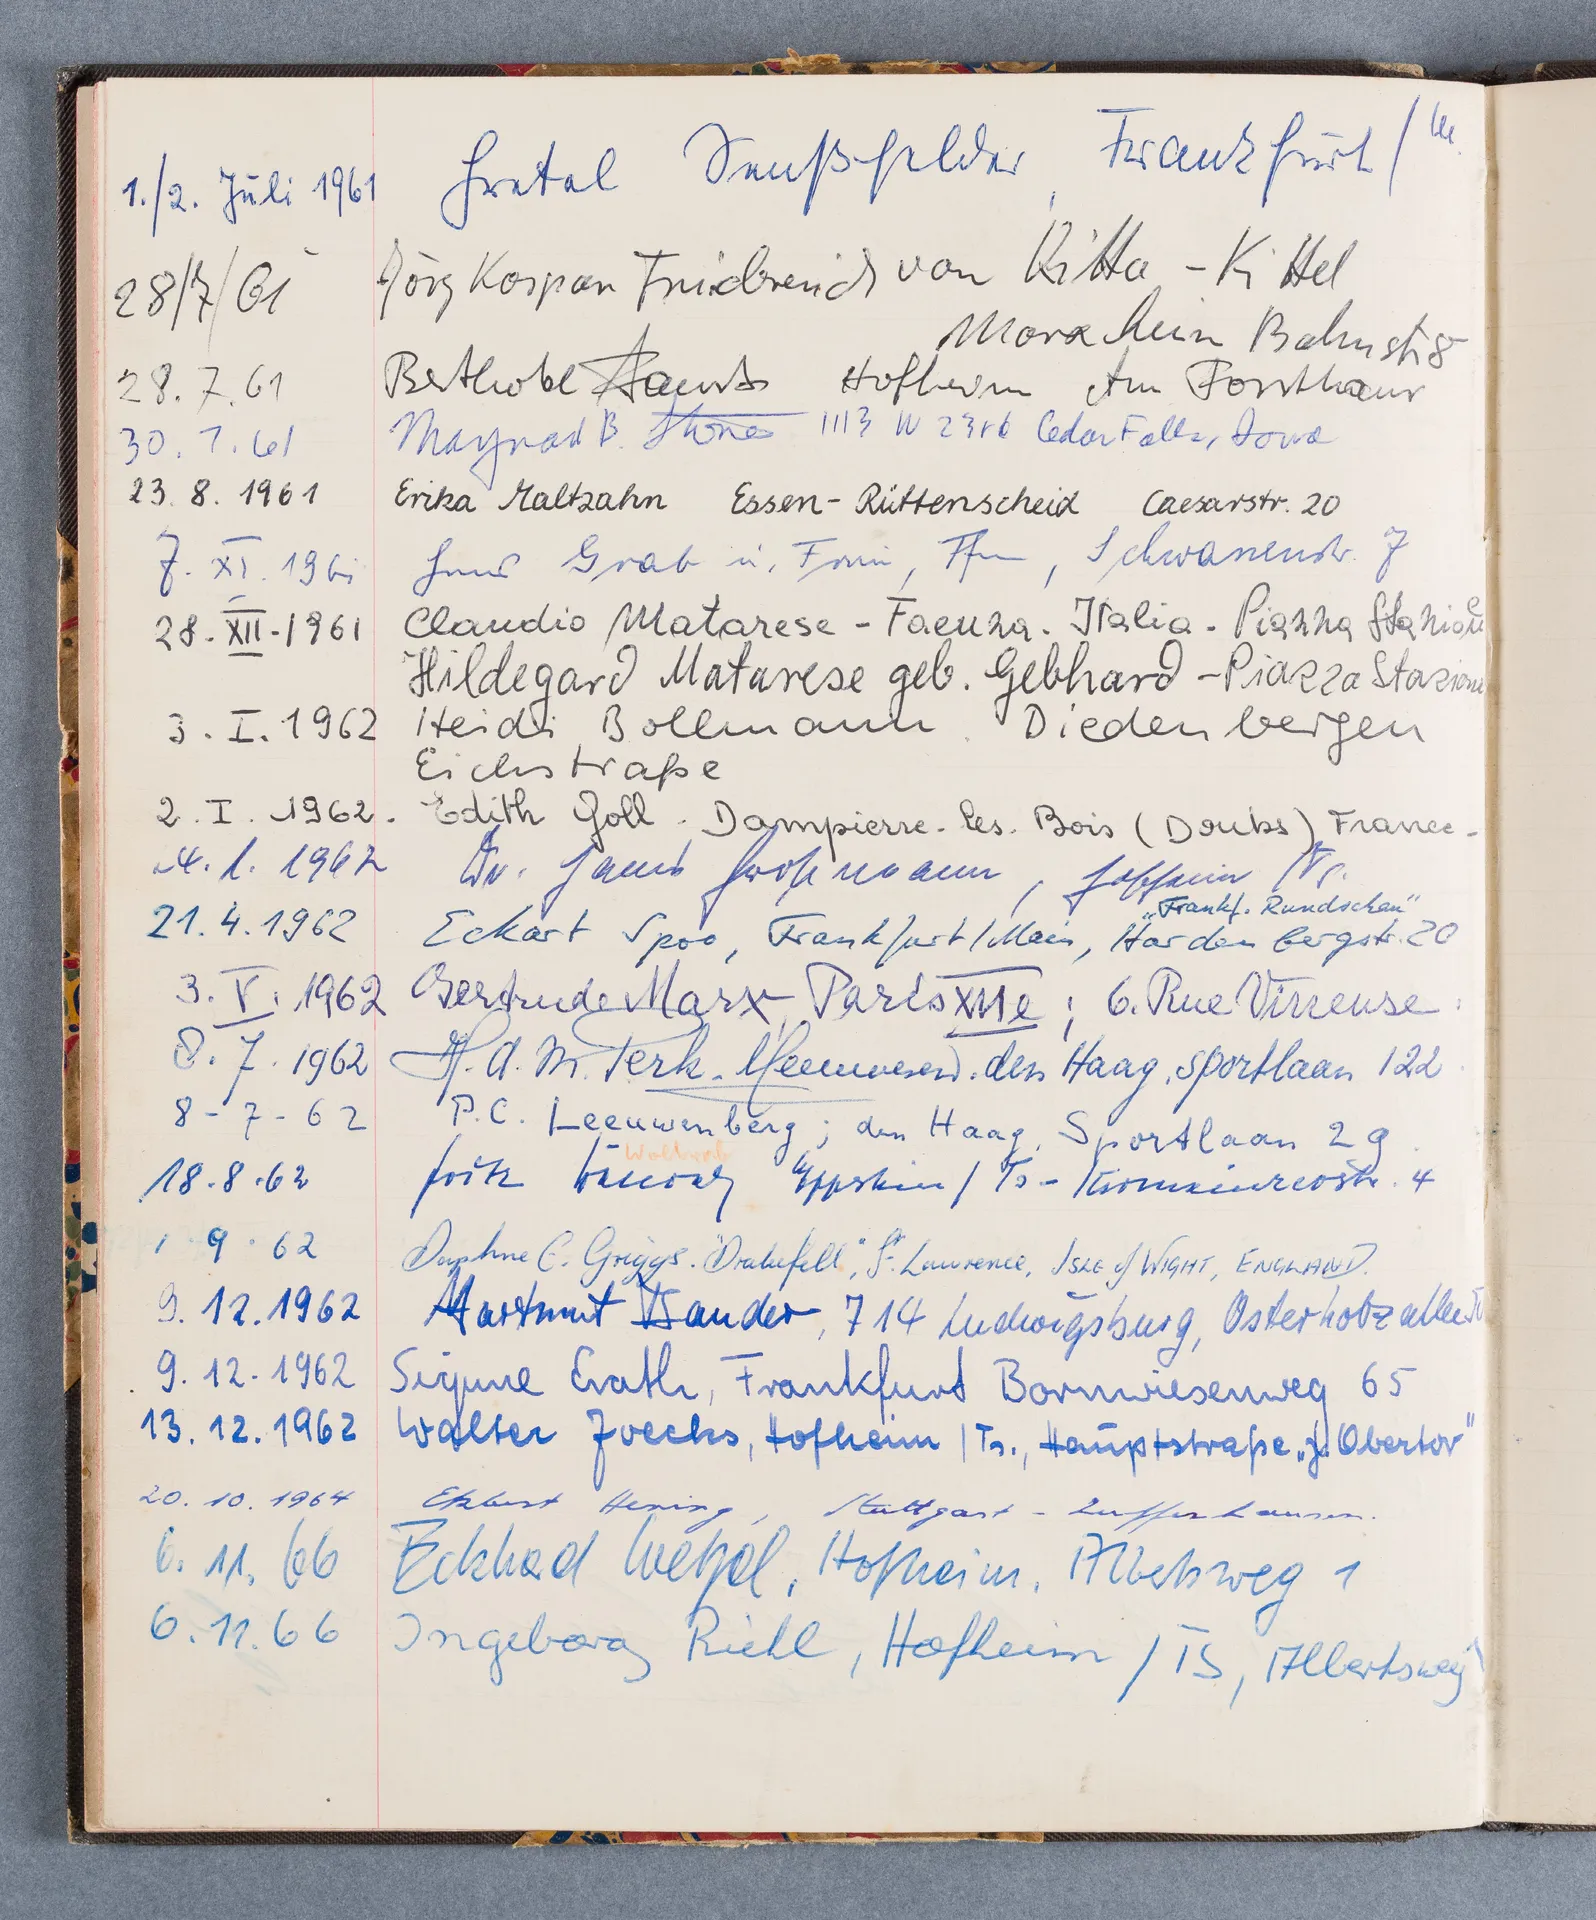 1./2. Juli 1961 Gretel Frankfurt/M.
28/7/61 Jörg Friedereich von Kitta - Kittel
Marxheim Bahnstr 8
28.7.61 Berthold Hofheim Am Forsthaus
30.7.61 Maynard B. 1113 W 23rd Cedar Falls, Iowa
23.8.1961 Erika Maltzahn Essen-Rüttenscheid Caesarstr. 20
7. XI. 1961 Grab u. Frau, Ffm, Schwanenstr. 7
28. XII. 1961 Claudio Matarese - Faenza. Italia - Piazza Stazione
Hildegard Matarese geb. Gebhard - Piazza Stazione
3. I. 1962 Heidi Bollmann Diedenbergen
Eichstraße
2. I. 1962. Edith Goll. Dampierre-les-Bois (Doubs) France -
4.1.1962 Dr. Großmann, Hofheim/Ts.
"Frankf. Rundschau"
21.4.1962 Eckart Spoo, Frankfurt/Main, Hardenbergstr. 20
3. V. 1962 Gertrude Marx, Paris XIIe; 6. Rue
8.7.1962 den Haag, Sportlaan 122
8-7-62 P.C. Leeuwenberg; den Haag, Sportlaan 29
18.8.62 Eppstein/Ts- 4
1 9.62 Daphne C. Griggs. St. Lawrence, ISLE of WIGHT, ENGLAND.
9.12.1962 Hartmut Bander, 714 Ludwigsburg, Osterholzallee
9.12.1962 Sigune Erath, Frankfurt Bornwiesenweg 65
13.12.1962 Walter Joecks, Hofheim/Ts., Hauptstraße "z. Obertor"
20.10.1964 Hering, Stuttgart - Zuffenhausen.
6.11.66 Eckhard Wetzel, Hofheim, Albertsweg 1
6.11.66 Ingeborg Riehl, Hofheim/TS, Albertsweg